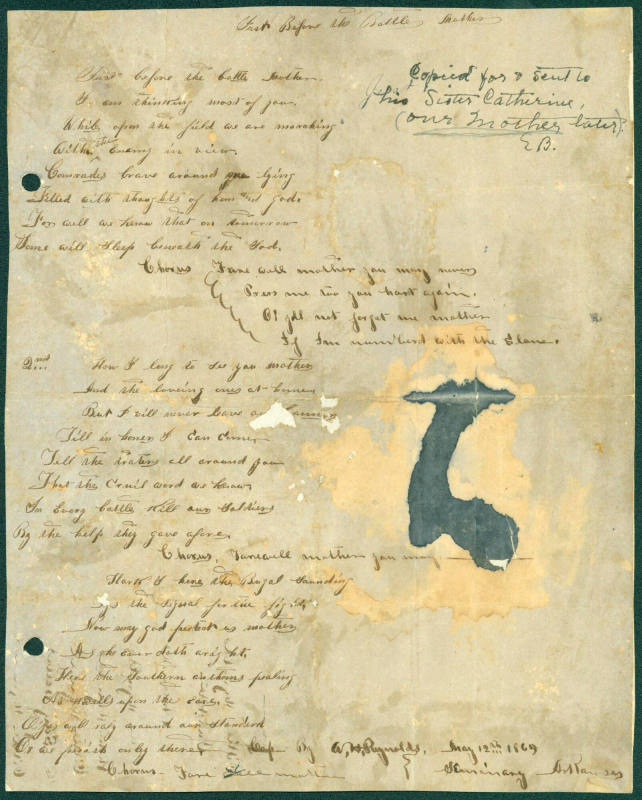 Just Before the Battle Mother
Copied for & Sent to
his Sister Catherine,
(our Mother later)
EB.
Just before the battle Mother
I am thinking most of you
While upon the field we are marching
With the Enemy in view
Comrades brave around you lying
Filled with thoughts of home and god
For well we know that on tomorrow
Some will Sleep beneath the Sod.
Chorus Fare well mother you may never
Press me too you hart again.
O! yll not forget me mother
If Im numberd with the Slane.
2nd How I long to See you mother
And the loveing ones at home
But I will never leave our banner
Till in honer I Can Come
Tell the traters all around you
That the Cruil word we know
In Every battle Kill our Soldiers
By the help they gave afore.
Chorus, Farewell mother you may
Hark I here the Bugal Sounding
the Signal for the fight
Now may god protect us mother
As he ever doth aright.
Hear the Southern pealing
upon the
around our Standard
Or we perish only there Cop By W. H. Reynolds, May 12th 1869
Chorus Fare well moth Seminary Arkansas